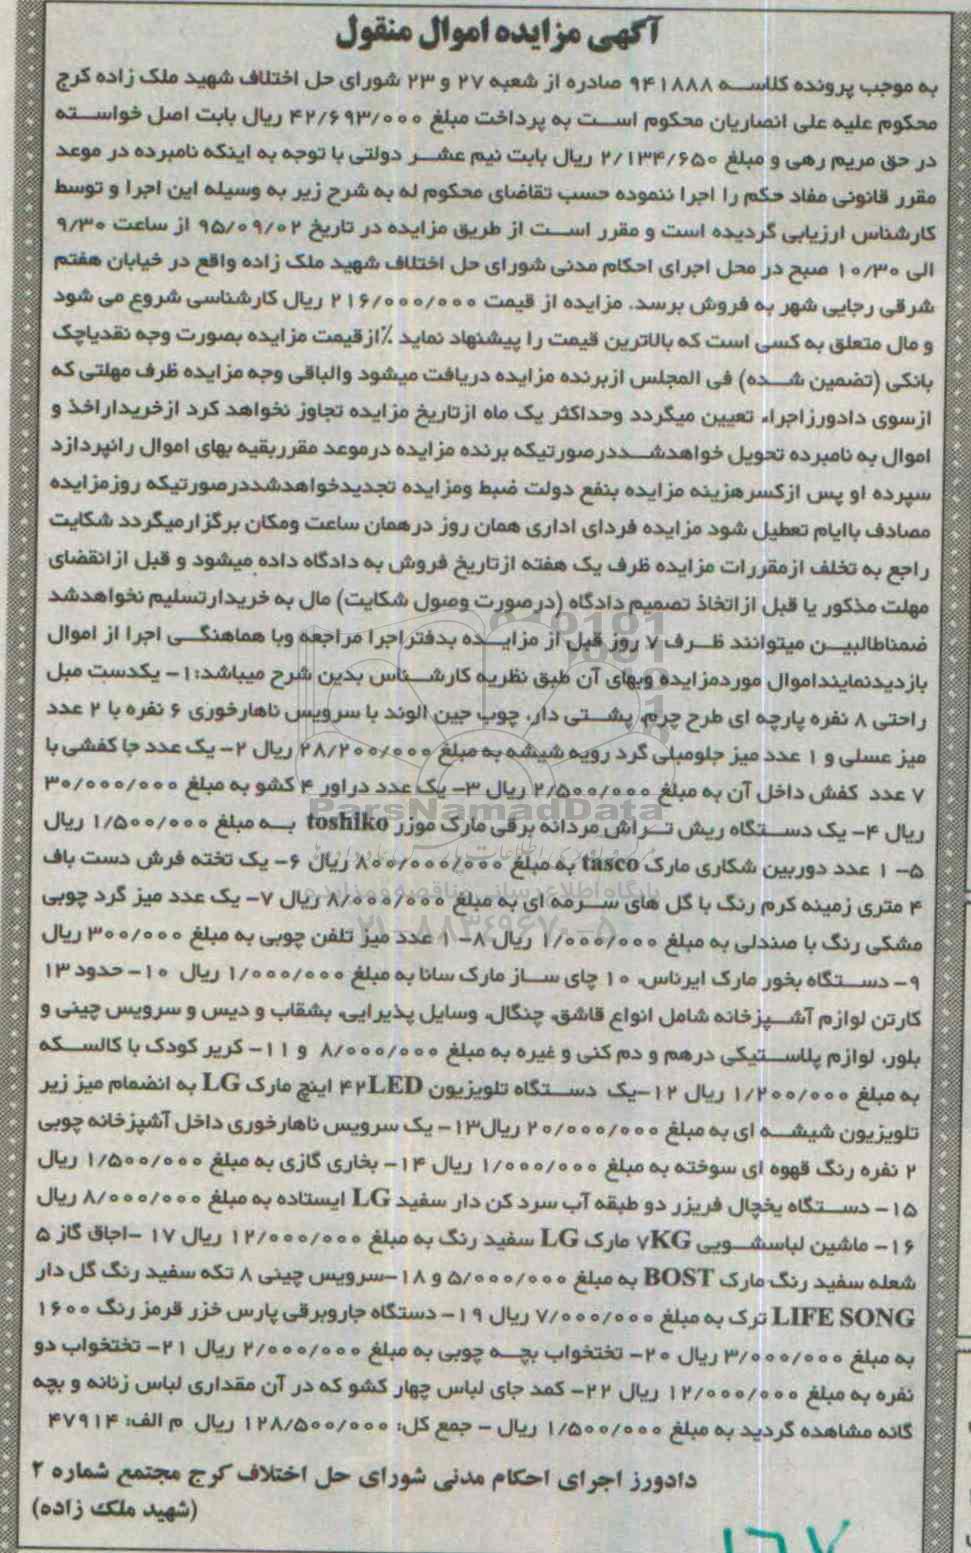 آگهی مزایده اموال منقول
به موجب پرونده کلاسه ۹۴۱۸۸۸ صادره از شعبه ۲۷ و ۲۳ شورای حل اختلاف شهید ملک زاده کرج
محکوم علیه علی انصاریان محکوم است به پرداخت مبلغ ۴۲/۶۹۳/۰۰۰ ریال بابت اصل خواسته
در حق مریم رهی و مبلغ ۲/۱۳۴/۶۵۰ ریال بابت نیم عشر دولتی با توجه به اینکه نامبرده در موعد
مقرر قانونی مفاد حکم را اجرا ننموده حسب تقاضای محکوم له به شرح زیر به وسیله این اجرا و توسط
کارشناس ارزیابی گردیده است و مقرر است از طریق مزایده در تاریخ ۹۵/۰۹/۰۲ از ساعت ۹/۳۰
الی ۱۰/۳۰ صبح در محل اجرای احکام مدنی شورای حل اختلاف شهید ملک زاده واقع در خیابان هفتم
شرقی رجایی شهر به فروش برسد. مزایده از قیمت ۲۱۶/۰۰۰/۰۰۰ ریال کارشناسی شروع می شود
و مال متعلق به کسی است که بالاترین قیمت را پیشنهاد نماید ٪ازقیمت مزایده بصورت وجه نقدیاچک
بانکی (تضمین شده) فی المجلس ازبرنده مزایده دریافت میشود والباقی وجه مزایده ظرف مهلتی که
ازسوی دادورزاجراء تعیین میگردد وحداکثر یک ماه ازتاریخ مزایده تجاوز نخواهد کرد ازخریداراخذ و
اموال به نامبرده تحویل خواهدشددرصورتیکه برنده مزایده درموعد مقرربقیه بهای اموال رانپردازد
سپرده او پس ازکسرهزینه مزایده بنفع دولت ضبط ومزایده تجدیدخواهدشددرصورتیکه روزمزایده
مصادف باایام تعطیل شود مزایده فردای اداری همان روز درهمان ساعت ومکان برگزارمیگردد شکایت
راجع به تخلف ازمقررات مزایده ظرف یک هفته ازتاریخ فروش به دادگاه داده میشود و قبل ازانقضای
مهلت مذکور یا قبل ازاتخاذ تصمیم دادگاه (درصورت وصول شکایت) مال به خریدارتسلیم نخواهدشد
ضمناطالبین میتوانند ظرف ۷ روز قبل از مزایده بدفتراجرا مراجعه وبا هماهنگی اجرا از اموال
بازدیدنماینداموال موردمزایده وبهای آن طبق نظریه کارشناس بدین شرح میباشد:۱- یکدست مبل
راحتی ۸ نفره پارچه ای طرح چرم، پشتی دار، چوب جین الوند با سرویس ناهارخوری ۶ نفره با ۲ عدد
میز عسلی و ۱ عدد میز جلومبلی گرد رویه شیشه به مبلغ ۲۸/۲۰۰/۰۰۰ ریال ۲- یک عدد جا کفشی با
۷ عدد کفش داخل آن به مبلغ ۲/۵۰۰/۰۰۰ ریال ۳- یک عدد دراور ۴ کشو به مبلغ ۳۰/۰۰۰/۰۰۰
ریال ۴- یک دستگاه ریش تراش مردانه برقی مارک موزر toshiko به مبلغ ۱/۵۰۰/۰۰۰ ریال
۵- ۱ عدد دوربین شکاری مارک tasco به مبلغ ۸۰۰/۰۰۰/۰۰۰ ریال ۶- یک تخته فرش دست باف
۴ متری زمینه کرم رنگ با گل های سرمه ای به مبلغ ۸/۰۰۰/۰۰۰ ریال ۷- یک عدد میز گرد چوبی
مشکی رنگ با صندلی به مبلغ ۱/۰۰۰/۰۰۰ ریال ۸- ۱ عدد میز تلفن چوبی به مبلغ ۳۰۰/۰۰۰ ریال
۹- دستگاه بخور مارک ایرناس، ۱۰ چای ساز مارک سانا به مبلغ ۱/۰۰۰/۰۰۰ ریال ۱۰- حدود ۱۳
کارتن لوازم آشپزخانه شامل انواع قاشق، چنگال، وسایل پذیرایی، بشقاب و دیس و سرویس چینی و
بلور، لوازم پلاستیکی درهم و دم کنی و غیره به مبلغ ۸/۰۰۰/۰۰۰ و ۱۱- کریر کودک با کالسکه
به مبلغ ۱/۲۰۰/۰۰۰ ریال ۱۲-یک دستگاه تلویزیون ۴۲LED اینچ مارک LG به انضمام میز زیر
تلویزیون شیشه ای به مبلغ ۲۰/۰۰۰/۰۰۰ ریال۱۳- یک سرویس ناهارخوری داخل آشپزخانه چوبی
۲ نفره رنگ قهوه ای سوخته به مبلغ ۱/۰۰۰/۰۰۰ ریال ۱۴- بخاری گازی به مبلغ ۱/۵۰۰/۰۰۰ ریال
۱۵- دستگاه یخچال فریزر دو طبقه آب سرد کن دار سفید LG ایستاده به مبلغ ۸/۰۰۰/۰۰۰ ریال
۱۶- ماشین لباسشویی ۷KG مارک LG سفید رنگ به مبلغ ۱۲/۰۰۰/۰۰۰ ریال ۱۷ -اجاق گاز ۵
شعله سفید رنگ مارک BOST به مبلغ ۵/۰۰۰/۰۰۰ و ۱۸-سرویس چینی ۸ تکه سفید رنگ گل دار
LIFE SONG ترک به مبلغ ۷/۰۰۰/۰۰۰ ریال ۱۹- دستگاه جاروبرقی پارس خزر قرمز رنگ ۱۶۰۰
به مبلغ ۳/۰۰۰/۰۰۰ ریال ۲۰- تختخواب بچه چوبی به مبلغ ۲/۰۰۰/۰۰۰ ریال ۲۱- تختخواب دو
نفره به مبلغ ۱۲/۰۰۰/۰۰۰ ریال ۲۲- کمد جای لباس چهار کشو که در آن مقداری لباس زنانه و بچه
گانه مشاهده گردید به مبلغ ۱/۵۰۰/۰۰۰ ریال - جمع کل: ۱۲۸/۵۰۰/۰۰۰ ریال م الف: ۴۷۹۱۴
دادورز اجرای احکام مدنی شورای حل اختلاف کرج مجتمع شماره ۲
(شهید ملک زاده)
ParsNamadData
پایگاه اطلاع رسانی مناقصه و مزایده
۰۲۱-۸۸۳۴۹۶۷۰-۵
۱۶۷